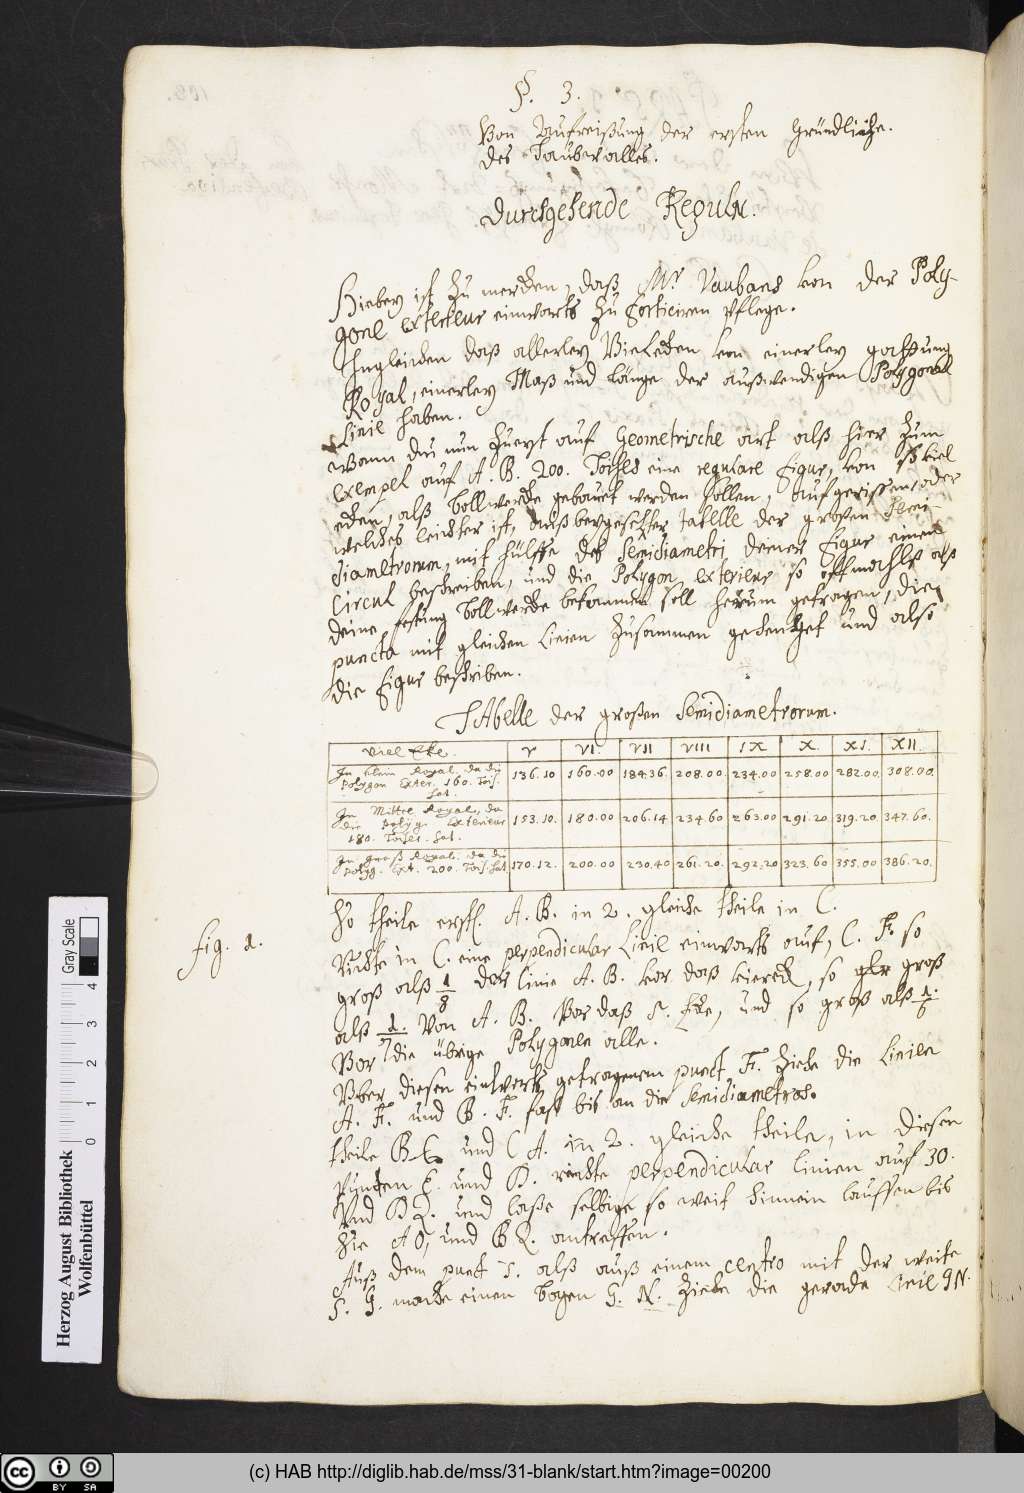 §. 3.
Von Aufreißung der ersten Gründliche.
des Taubervalles.
Durchgehende Reguln.
Hiebey ist zu mercken, daß Mr Vaubans von der Poly-
gone exterieur einwarts zu fortificiren pflege.
Ingleichen daß allerley Vielecken von einerley gattung
Royal, einerley Maß und länge der außwendigen Polygonal
Linie haben.
Wann du nun zuerst auf Geometrische art alß hier zum
exempel auf A. B. 200. Toises eine regulare figur, von so viel
ecken, alß Bollwercke gebauet werden sollen, aufgerissen, oder
welches leichter ist, auß beygesetzter tabelle der großen Semi-
diametrorum, mit hülffe des Semidiametri deiner figur einen
Circul beschreiben, und die Polygon exterieur so offtmahlß alß
deine festung Bollwercke bekommen soll herum getragen, die
puncta mit gleichen Linien zusammen gehencket und also
die figur beschriben.
TAbelle der großen Semidiametrorum.
Viel Eke. V VI. VII VIII IX X. XI. XII.
In klein Royal. da die
Polygon Exter. 160. Tois.
hat.
136.10 160.00 184.36. 208.00. 234.00 258.00 282.00. 308.00.
In Mittel Royal, da
die Polyg. Exterieur
180. Toises. hat.
153.10. 180.00 206.14 234.60 263.00 291.20. 319.20 347.60.
In groß Royal. da die
Polyg. Ext. 200. Tois. hat
170.12. 200.00 230.40 261.20. 292.20 323.60 355.00 386.20.
So theile erstl. A. B. in 2. gleiche theile in C.
fig. 1.
Richte in C. eine perpendicular Linie einwarts auf, C. F. so
groß alß 1/8 der linie A. B. vor daß viereck, so groß
alß 1/7 Von A. B. Vor daß 5. Eke, und so groß alß 1/6
Vor die übrige Polygone alle.
Vber diesen einwarts getragenem punct F. Ziehe die Linien
A. F. und B. F. fast bis an die Semidiametros.
theile B und C A. in 2. gleiche theile, in diesen
Puncten E. und D. richte perpendicular linien auf 30.
Und laße selbige so weit hinnein lauffen bis
Sie und antreffen.
Auß dem punct alß auß einem centro mit der weite
S. G. mache einen bogen G. N. Ziehe die gerade Linie GN.
Gray Scale
0 1 2 3 4
Herzog August Bibliothek
Wolfenbüttel
cc BY SA
(c) HAB http://diglib.hab.de/mss/31-blank/start.htm?image=00200